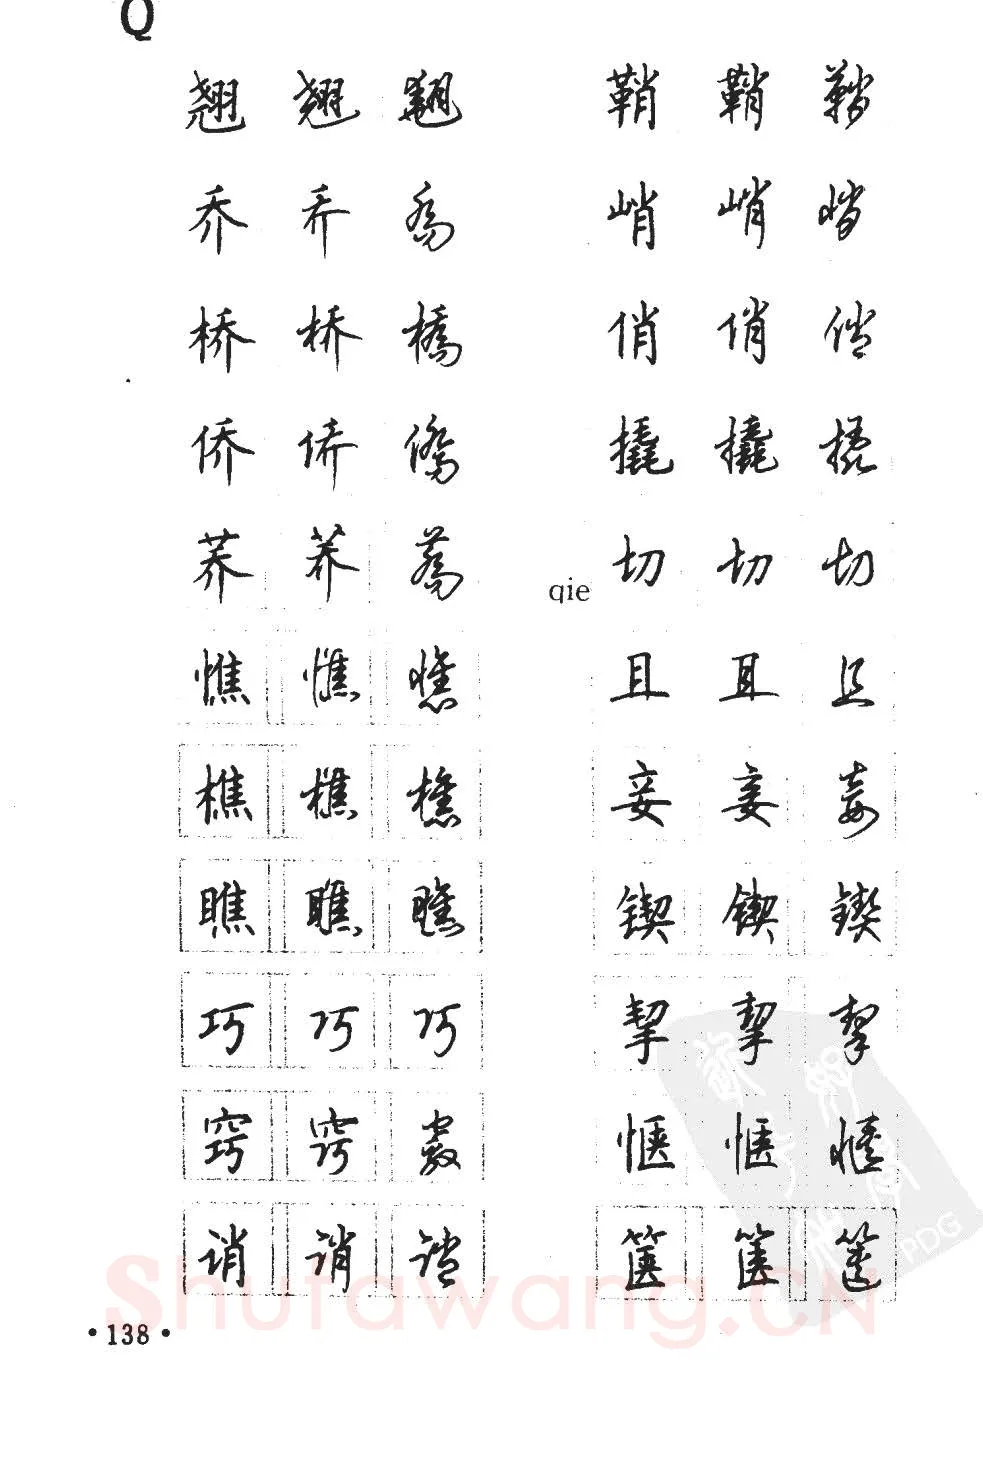 Q
翘 翘 翹
乔 乔 喬
桥 桥 橋
侨 侨 僑
荞 荞 蕎
憔 憔 憔
樵 樵 樵
瞧 瞧 瞧
巧 巧 巧
窍 窍 竅
诮 诮 诮
鞘 鞘 鞘
峭 峭 峭
俏 俏 俏
撬 撬 撬
qie 切 切 切
且 且 且
妾 妾 妾
锲 锲 锲
挈 挈 挈
惬 惬 愜
箧 箧 篋
PDG
Shufawang.CN
·138·